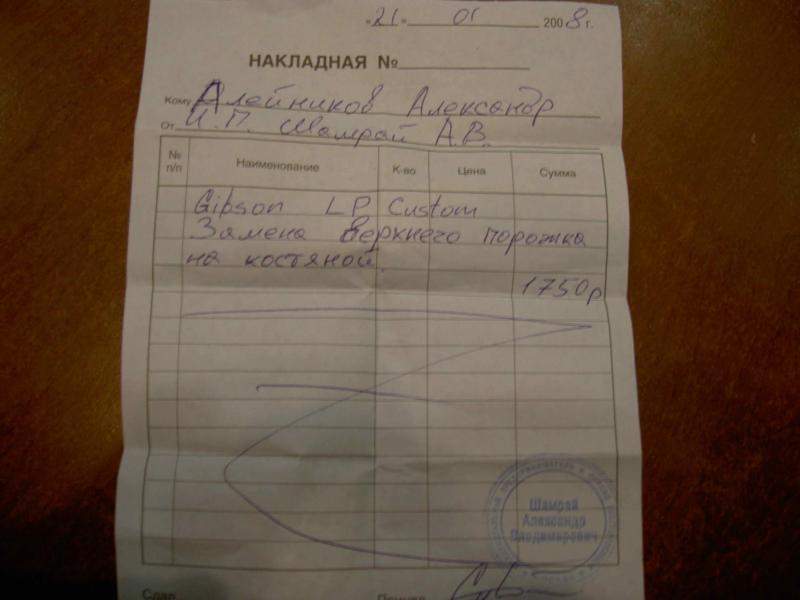 « 21 » 01 2008 г.
НАКЛАДНАЯ №
Кому Алейников Александр
От И.П. Шамрай А.В.
№ п/п Наименование К-во Цена Сумма
Gibson LP Custom
Замена верхнего порожка
на костяной.
1750р
Шамрай
Александр
Владимирович
Сдал Принял